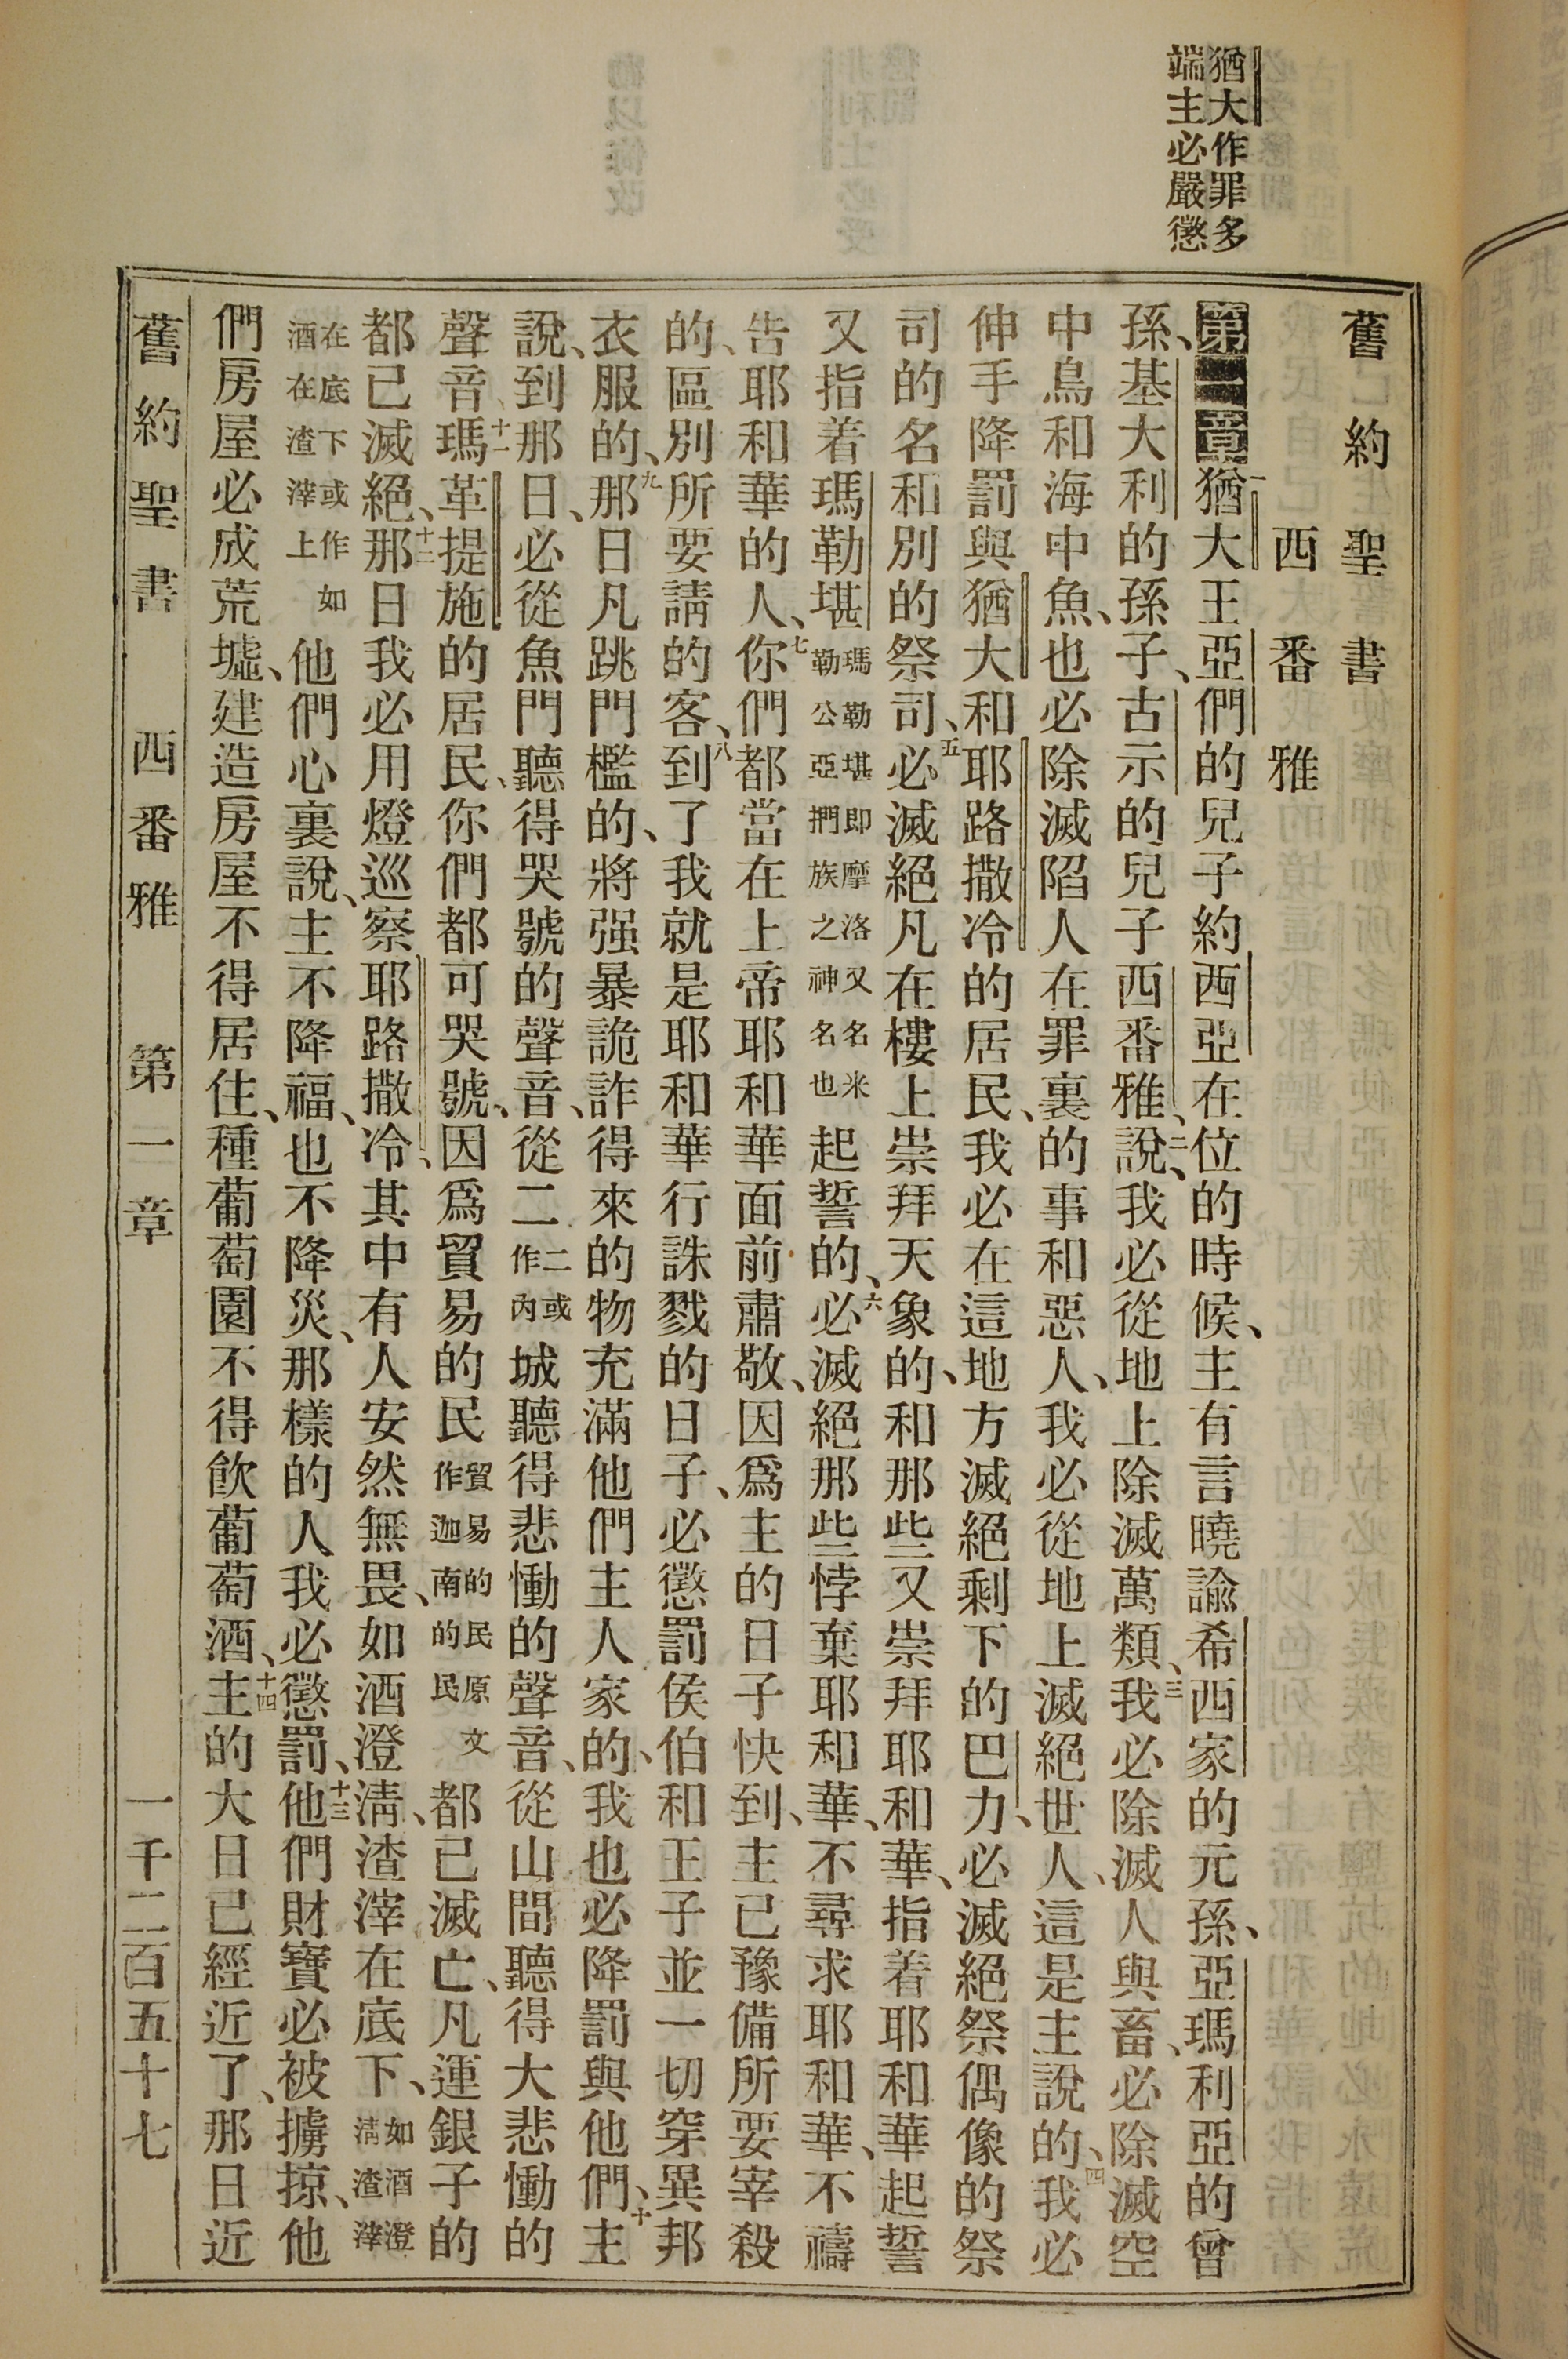 猶大作罪多
端主必嚴懲
舊約聖書
西番雅
第一章一猶大王亞們的兒子約西亞在位的時候、主有言曉諭希西家的元孫、亞瑪利亞的曾
孫、基大利的孫子、古示的兒子西番雅、二說、我必從地上除滅萬類、三我必除滅人與畜、必除滅空
中鳥和海中魚、也必除滅陷人在罪裏的事和惡人、我必從地上滅絕世人、這是主說的、四我必
伸手降罰與猶大和耶路撒冷的居民、我必在這地方滅絕剩下的巴力、必滅絕祭偶像的祭
司的名和別的祭司、五必滅絕凡在樓上崇拜天象的、和那些又崇拜耶和華、指着耶和華起誓
又指着瑪勒堪瑪勒堪即摩洛又名米勒公亞捫族之神名也起誓的、六必滅絕那些悖棄耶和華、不尋求耶和華、不禱
告耶和華的人、七你們都當在上帝耶和華面前肅敬、因爲主的日子快到、主已豫備所要宰殺
的、區別所要請的客、八到了我就是耶和華行誅戮的日子、必懲罰侯伯和王子並一切穿異邦
衣服的、九那日凡跳門檻的、將强暴詭詐得來的物充滿他們主人家的、我也必降罰與他們、十主
說、到那日、必從魚門聽得哭號的聲音、從二二或作內城聽得悲慟的聲音、從山間聽得大悲慟的
聲音、十一瑪革提施的居民、你們都可哭號、因爲貿易的民貿易的民原文作迦南的民都已滅亡、凡運銀子的
都已滅絕、十二那日我必用燈巡察耶路撒冷、其中有人安然無畏、如酒澄淸、渣滓在底下、如酒澄淸渣滓
在底下或作如酒在渣滓上他們心裏說、主不降福、也不降災、那樣的人我必懲罰、十三他們財寶必被擄掠、他
們房屋必成荒墟、建造房屋不得居住、種葡萄園不得飮葡萄酒、十四主的大日已經近了、那日近
舊約聖書 西番雅 第一章 一千二百五十七